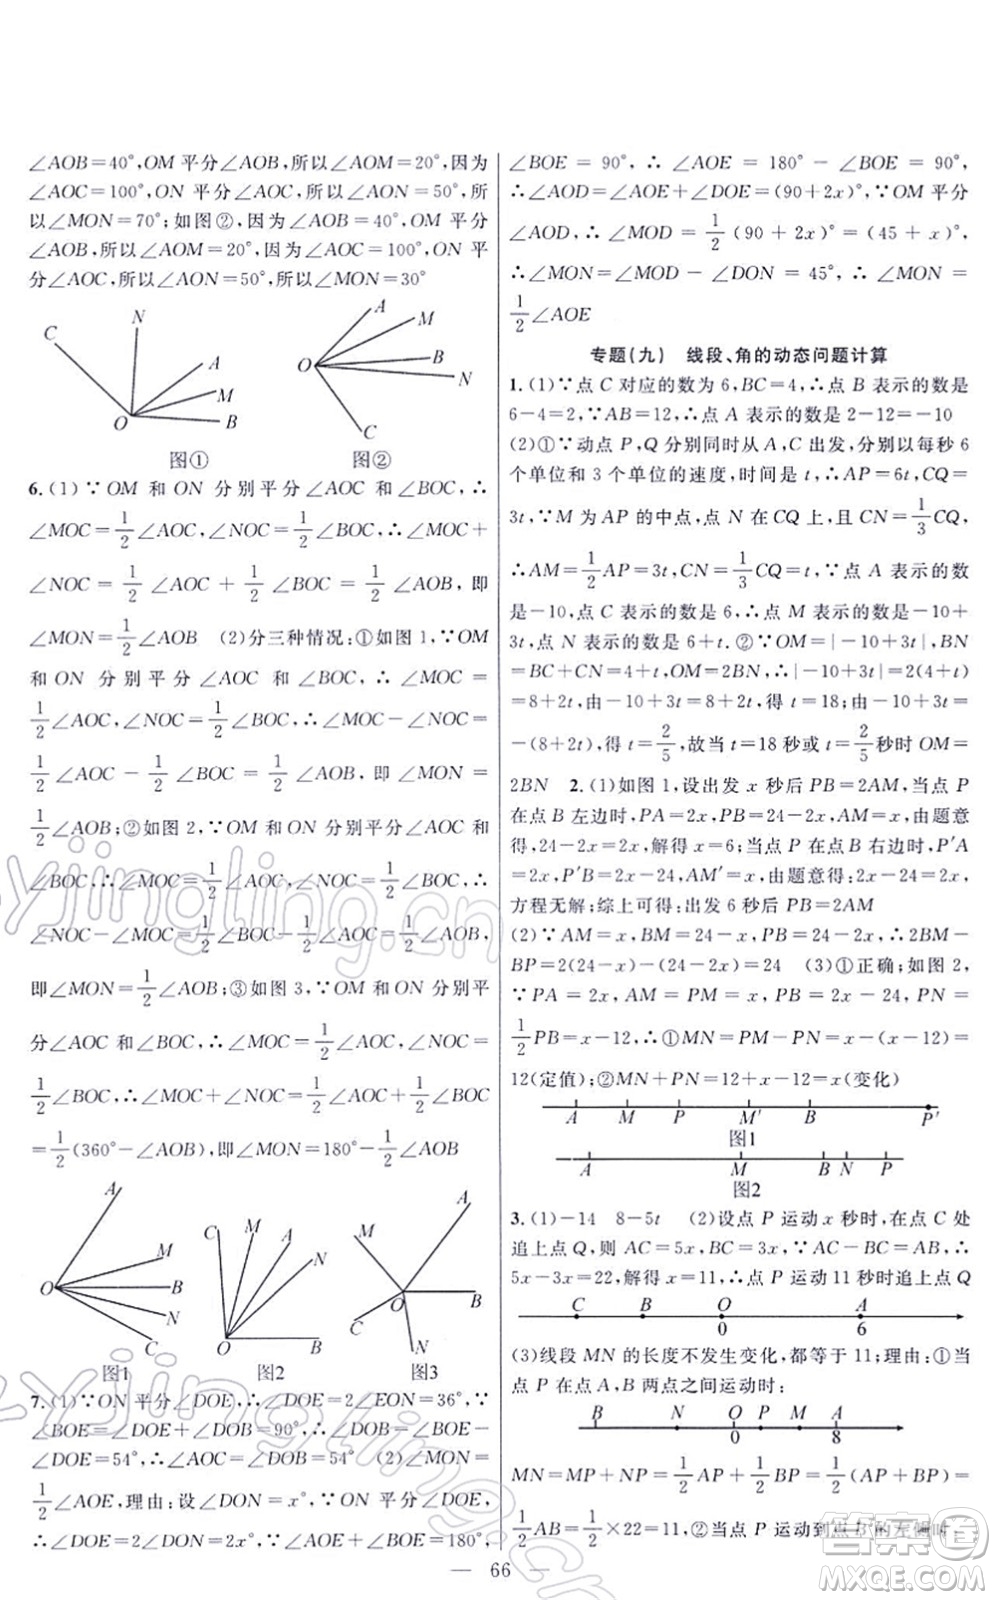 ∠AOB=40°,OM 平分∠AOB,所以∠AOM=20°,因为
∠AOC=100°,ON 平分∠AOC,所以∠AON=50°,所
以∠MON=70°;如图②,因为∠AOB=40°,OM 平分
∠AOB,所以∠AOM=20°,因为∠AOC=100°,ON 平
分∠AOC,所以∠AON=50°,所以∠MON=30°
C N A M B O 图①
A M B N O C 图②
6.(1)∵OM 和 ON 分别平分∠AOC 和∠BOC,∴
∠MOC=1/2∠AOC,∠NOC=1/2∠BOC,∴∠MOC+
∠NOC=1/2∠AOC+1/2∠BOC=1/2∠AOB,即
∠MON=1/2∠AOB (2)分三种情况:①如图 1,∵OM
和 ON 分别平分∠AOC 和∠BOC,∴∠MOC=
1/2∠AOC,∠NOC=1/2∠BOC,∴∠MOC-∠NOC=
1/2∠AOC-1/2∠BOC=1/2∠AOB,即∠MON=
1/2∠AOB;②如图 2,∵OM 和 ON 分别平分∠AOC 和
∠BOC,∴∠MOC=1/2∠AOC,∠NOC=1/2∠BOC,∴
∠NOC-∠MOC=1/2∠BOC-1/2∠AOC=1/2∠AOB,
即∠MON=1/2∠AOB;③如图 3,∵OM 和 ON 分别平
分∠AOC 和∠BOC,∴∠MOC=1/2∠AOC,∠NOC=
1/2∠BOC,∴∠MOC+∠NOC=1/2∠AOC+1/2∠BOC
=1/2(360°-∠AOB),即∠MON=180°-1/2∠AOB
A M B N C O 图1
C M A N B O 图2
M A B C N O 图3
7.(1)∵ON 平分∠DOE,∴∠DOE=2∠EON=36°,∵
∠BOE=∠DOE+∠DOB=90°,∴∠DOB=∠BOE-
∠DOE=54°,∴∠AOC=∠DOB=54° (2)∠MON=
1/2∠AOE,理由:设∠DON=x°,∵ON 平分∠DOE,
∴∠DOE=2∠DON=2x°,∵∠AOE+∠BOE=180°,
∠BOE=90°,∴∠AOE=180°-∠BOE=90°,
∴∠AOD=∠AOE+∠DOE=(90+2x)°,∵OM 平分
∠AOD,∴∠MOD=1/2(90+2x)°=(45+x)°,
∴∠MON=∠MOD-∠DON=45°,∴∠MON=
1/2∠AOE
专题(九) 线段、角的动态问题计算
1.(1)∵点 C 对应的数为 6,BC=4,∴点 B 表示的数是
6-4=2,∵AB=12,∴点 A 表示的数是 2-12=-10
(2)①∵动点 P,Q 分别同时从 A,C 出发,分别以每秒 6
个单位和 3 个单位的速度,时间是 t,∴AP=6t,CQ=
3t,∵M 为 AP 的中点,点 N 在 CQ 上,且 CN=1/3CQ,
∴AM=1/2AP=3t,CN=1/3CQ=t,∵点 A 表示的数
是-10,点 C 表示的数是 6,∴点 M 表示的数是-10+
3t,点 N 表示的数是 6+t.②∵OM=|-10+3t|,BN
=BC+CN=4+t,OM=2BN,∴|-10+3t|=2(4+t)
=8+2t,由-10+3t=8+2t,得 t=18;由-10+3t=
-(8+2t),得 t=2/5,故当 t=18 秒或 t=2/5秒时 OM=
2BN 2.(1)如图 1,设出发 x 秒后 PB=2AM,当点 P
在点 B 左边时,PA=2x,PB=24-2x,AM=x,由题意
得,24-2x=2x,解得 x=6;当点 P 在点 B 右边时,P′A
=2x,P′B=2x-24,AM′=x,由题意得:2x-24=2x,
方程无解;综上可得:出发 6 秒后 PB=2AM
(2)∵AM=x,BM=24-x,PB=24-2x,∴2BM-
BP=2(24-x)-(24-2x)=24 (3)①正确;如图 2,
∵PA=2x,AM=PM=x,PB=2x-24,PN=
1/2PB=x-12,∴①MN=PM-PN=x-(x-12)=
12(定值);②MN+PN=12+x-12=x(变化)
A M P M′ B P′
图1
A M B N P
图2
3.(1)-14 8-5t (2)设点 P 运动 x 秒时,在点 C 处
追上点 Q,则 AC=5x,BC=3x,∵AC-BC=AB,∴
5x-3x=22,解得 x=11,∴点 P 运动 11 秒时追上点 Q
C B O A
0 6
(3)线段 MN 的长度不发生变化,都等于 11;理由:①当
点 P 在点 A,B 两点之间运动时:
B N O P M A
0 8
MN=MP+NP=1/2AP+1/2BP=1/2(AP+BP)=
1/2AB=1/2×22=11,②当点 P 运动到点 B 的左侧时
— 66 —
答案圈
MXQE.COM